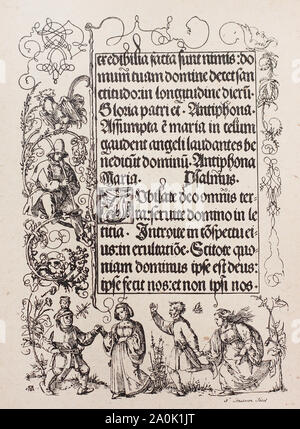 credibilia facta sunt nimis: do
mum tuam domine decet san
ctitudo: in longitudine dierū.
Gloria patri et. Antiphona.
Assumpta ē maria in celum
gaudent angeli laudantes be
nedicūt dominū. Antiphona
Maria. Psalmus.
Jubilate deo omnis ter
ra: servite domino in le
titia. Introite in cōspectu ei
us: in exultatiōe. Scitote quo
niam dominus ipse est deus:
ipse fecit nos: et non ipsi nos.
alamy
Image ID: 2A0K1JT
www.alamy.com